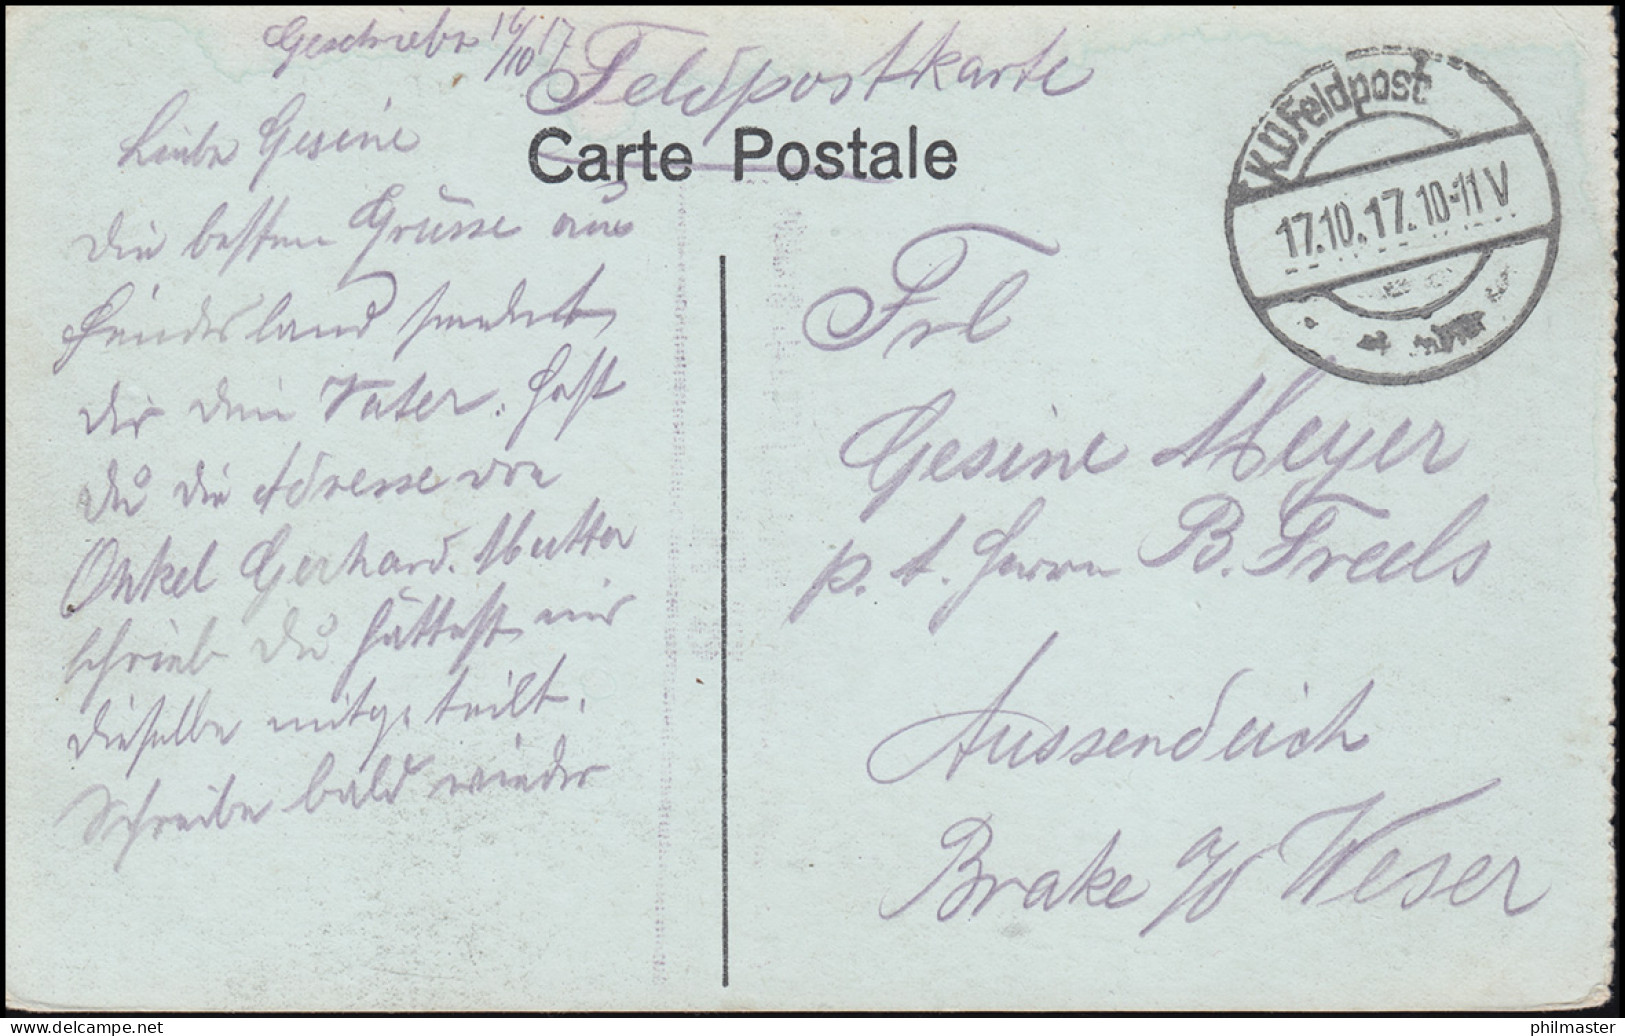 Geschrieben 16/10 17
Feldpostkarte
Carte Postale
K.D. Feldpost
17.10.17. 10-11 V
Liebe Gesine
Die besten Grüsse aus
Feindesland sendet
dir dein Vater. Hast
du die Adresse von
Onkel Gerhard. Mutter
schrieb du hättest mir
dieselbe mitgeteilt.
Schreibe bald wieder
Frl
Gesine Meyer
p. t. Herrn B. Freels
Aussendeich
Brake a/d Weser
www.delcampe.net
philmaster